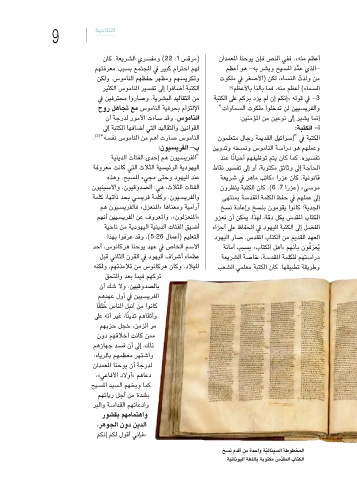 الافتتاحية
9
أعظم منه. ففي النص فإن يوحنا المعمدان
-الذي عمّد المسيح وبشر به- هو أعظم
من ولدتْ النساء، لكن (الأصغر في ملكوت
السماء) أعظم منه، فما بالنا بالأعظم؟!
3- في قوله «إنكم إن لم يزد بركم على الكتبة
والفريسيين لن تدخلوا ملكوت السماوات»
إنما يشير إلى نوعين من المؤمنين:
أ- الكتبة:
الكتبة في "إسرائيل القديمة رجال متعلمون
وعملهم هو دراسة الناموس ونسخه وتدوين
تفسيره. كما كان يتم توظيفهم أحيانًا عند
الحاجة إلى وثائق مكتوبة، أو إلى تفسير نقاط
قانونية. كان عزرا «كاتب ماهر في شريعة
موسى» (عزرا 7: 6). كان الكتبة ينظرون
إلى عملهم في حفظ الكلمة المقدسة بمنتهى
الجدية؛ كانوا يقومون بنسخ وإعادة نسخ
الكتاب المقدس بكل دقة، لهذا، يمكن أن نعزو
الفضل إلى الكتبة اليهود في الحفاظ على أجزاء
العهد القديم من الكتاب المقدس. صار اليهود
يُعرَفون بأنهم «أهل الكتاب»، بسبب أمانة
دراستهم للكلمة المقدسة، خاصة الشريعة
وطريقة تطبيقها. كان الكتبة معلمي الشعب
(مرقس 1: 22) ومفسري الشريعة. كان
لهم احترام كبير في المجتمع بسبب معرفتهم
وتكريسهم ومظهر حفظهم الناموس. ولكن
الكتبة أضافوا إلى تفسير الناموس الكثير
من التقاليد البشرية. وصاروا محترفين في
الإلتزام بحرفية الناموس مع تجاهل روح
الناموس. وقد ساءت الأمور لدرجة أن
القوانين والتقاليد التي أضافها الكتبة إلى
الناموس صارت أهم من الناموس نفسه"
ب- الفريسيون:
"الفريسيون هم إحدى الفئات الدينية
اليهودية الرئيسية الثلاث التي كانت معروفة
عند اليهود وحتى مجيء المسيح. وهذه
الفئات الثلاث، هي: الصدوقيون، والأسينيون
والفريسيون. وكلمة فريسي بحد ذاتها، كلمة
آرامية ومعناها «المنعزل» فالفريسيون هم
«المنعزلون»، والمعروف عن الفريسيين أنهم
أضيق الفئات الدينية اليهودية من ناحية
التعليم (أعمال 26:5). وقد عرفوا بهذا
الاسم الخاص في عهد يوحنا هركانوس، أحد
عظماء أشراف اليهود في القرن الثاني قبل
الميلاد. وكان هركانوس من تلامذتهم، ولكنه
تركهم فيما بعد والتحق
بالصدوقيين. ولا شك أن
الفريسيين في أول عهدهم
كانوا من أنبل الناس خُلُقًا
وأنقاهم تدينًا، غير أنه على
مر الزمن، دخل حزبهم
ممن كانت أخلاقهم دون
ذلك، إلى أن فسد جهازهم
واشتهر معظمهم بالرياء،
لدرجة أن يوحنا المعمدان
دعاهم «أولاد الأفاعي»،
كما وبخهم السيد المسيح
بشدة من أجل ريائهم
وادعائهم القداسة والبر
واهتمامهم بقشور
الدين دون الجوهر،
«فإني أقول لكم إنكم
المخطوطة السينائيّة واحدة من أقدم نسخ
الكتاب المقدّس مكتوبة باللغة اليونانية